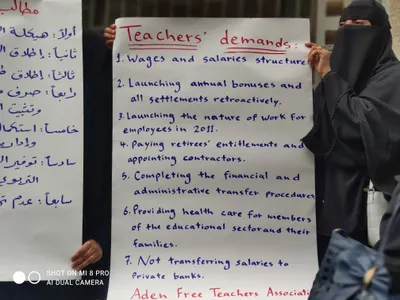 مطالب
أولاً: هيكلة ال
ثانياً: إطلاق ال
ثالثاً: إطلاق ط
رابعاً: صرف م
وتثبيت ا
خامساً: استكما
وإداريـ
سادساً: توفير ال
التربوي
سابعاً: عدم تـ
Teachers' demands:
1. Wages and salaries structure
2. Launching annual bonuses and
all settlements retroactively.
3. Launching the nature of work for
employees in 2011.
4. Paying retirees' entitlements and
appointing contractors.
5. Completing the financial and
administrative transfer procedures
6. Providing health care for members
of the educational sector and their
families.
7. Not transferring salaries to
private banks.
Aden Free Teachers Associati
SHOT ON MI 8 PRO
AI DUAL CAMERA